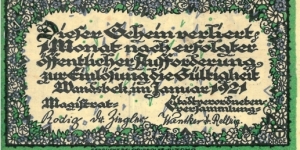 Dieser Schein verliert
1 Monat nach erfolgter
öffentlicher Aufforderung
zur Einlösung die Gültigkeit
Wandsbek, im Januar 1921
Magistrat: Stadtverordneten-
versammlung:
Rodig Dr. Ziegler